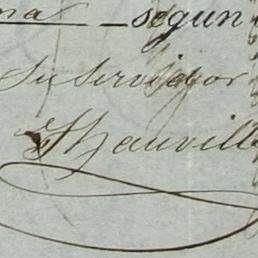 ma segun
su servidor
Thauvill